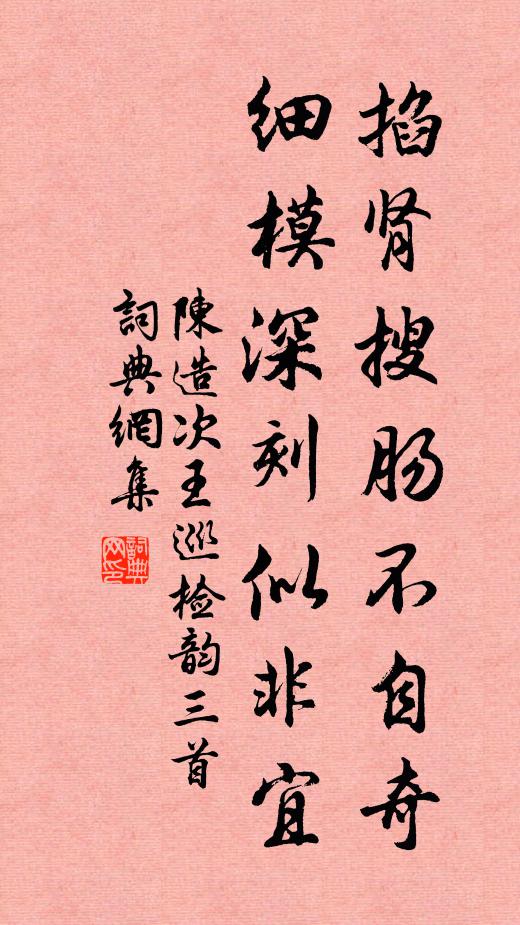 掐肾搜肠不自奇
细模深刻似非宜
陳造次王巡检韵三首
詞典網集
詞典网印